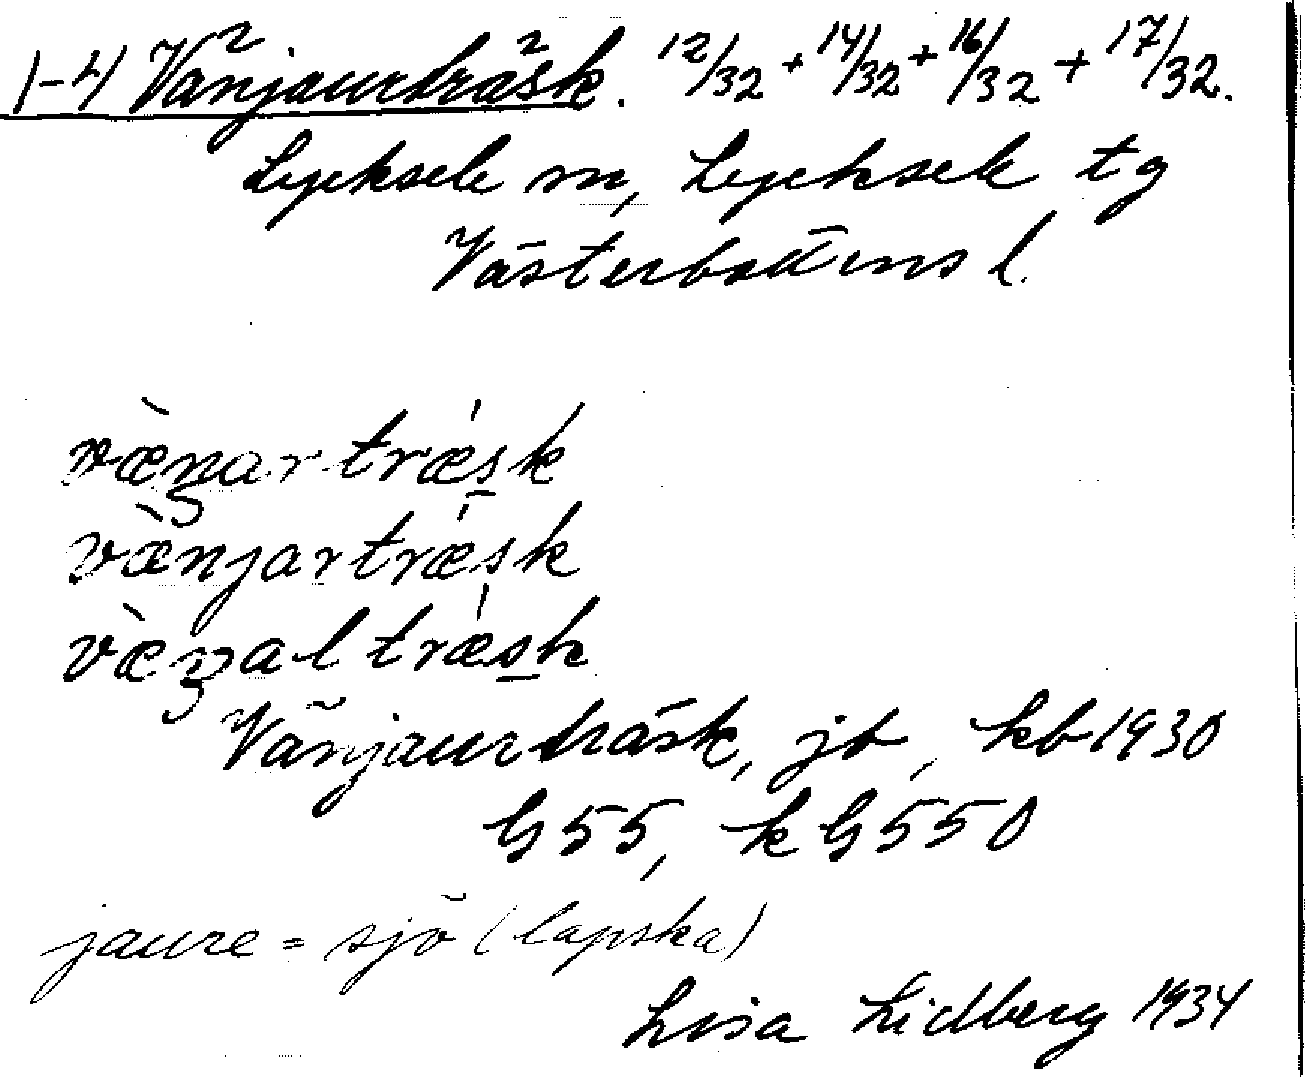 1-4) Vänjaurträsk. 12/32 + 14/32 + 16/32 + 17/32.
Lycksele m, Lycksele tg
Västerbottens l.
væ̀ŋartrǽsk
væ̀njartrǽsk
væ̀ŋaltrǽsk
Vänjaurträsk, jb, kb 1930
G 55, k G 550
jaure = sjö (lapska)
Lisa Lidberg 1934